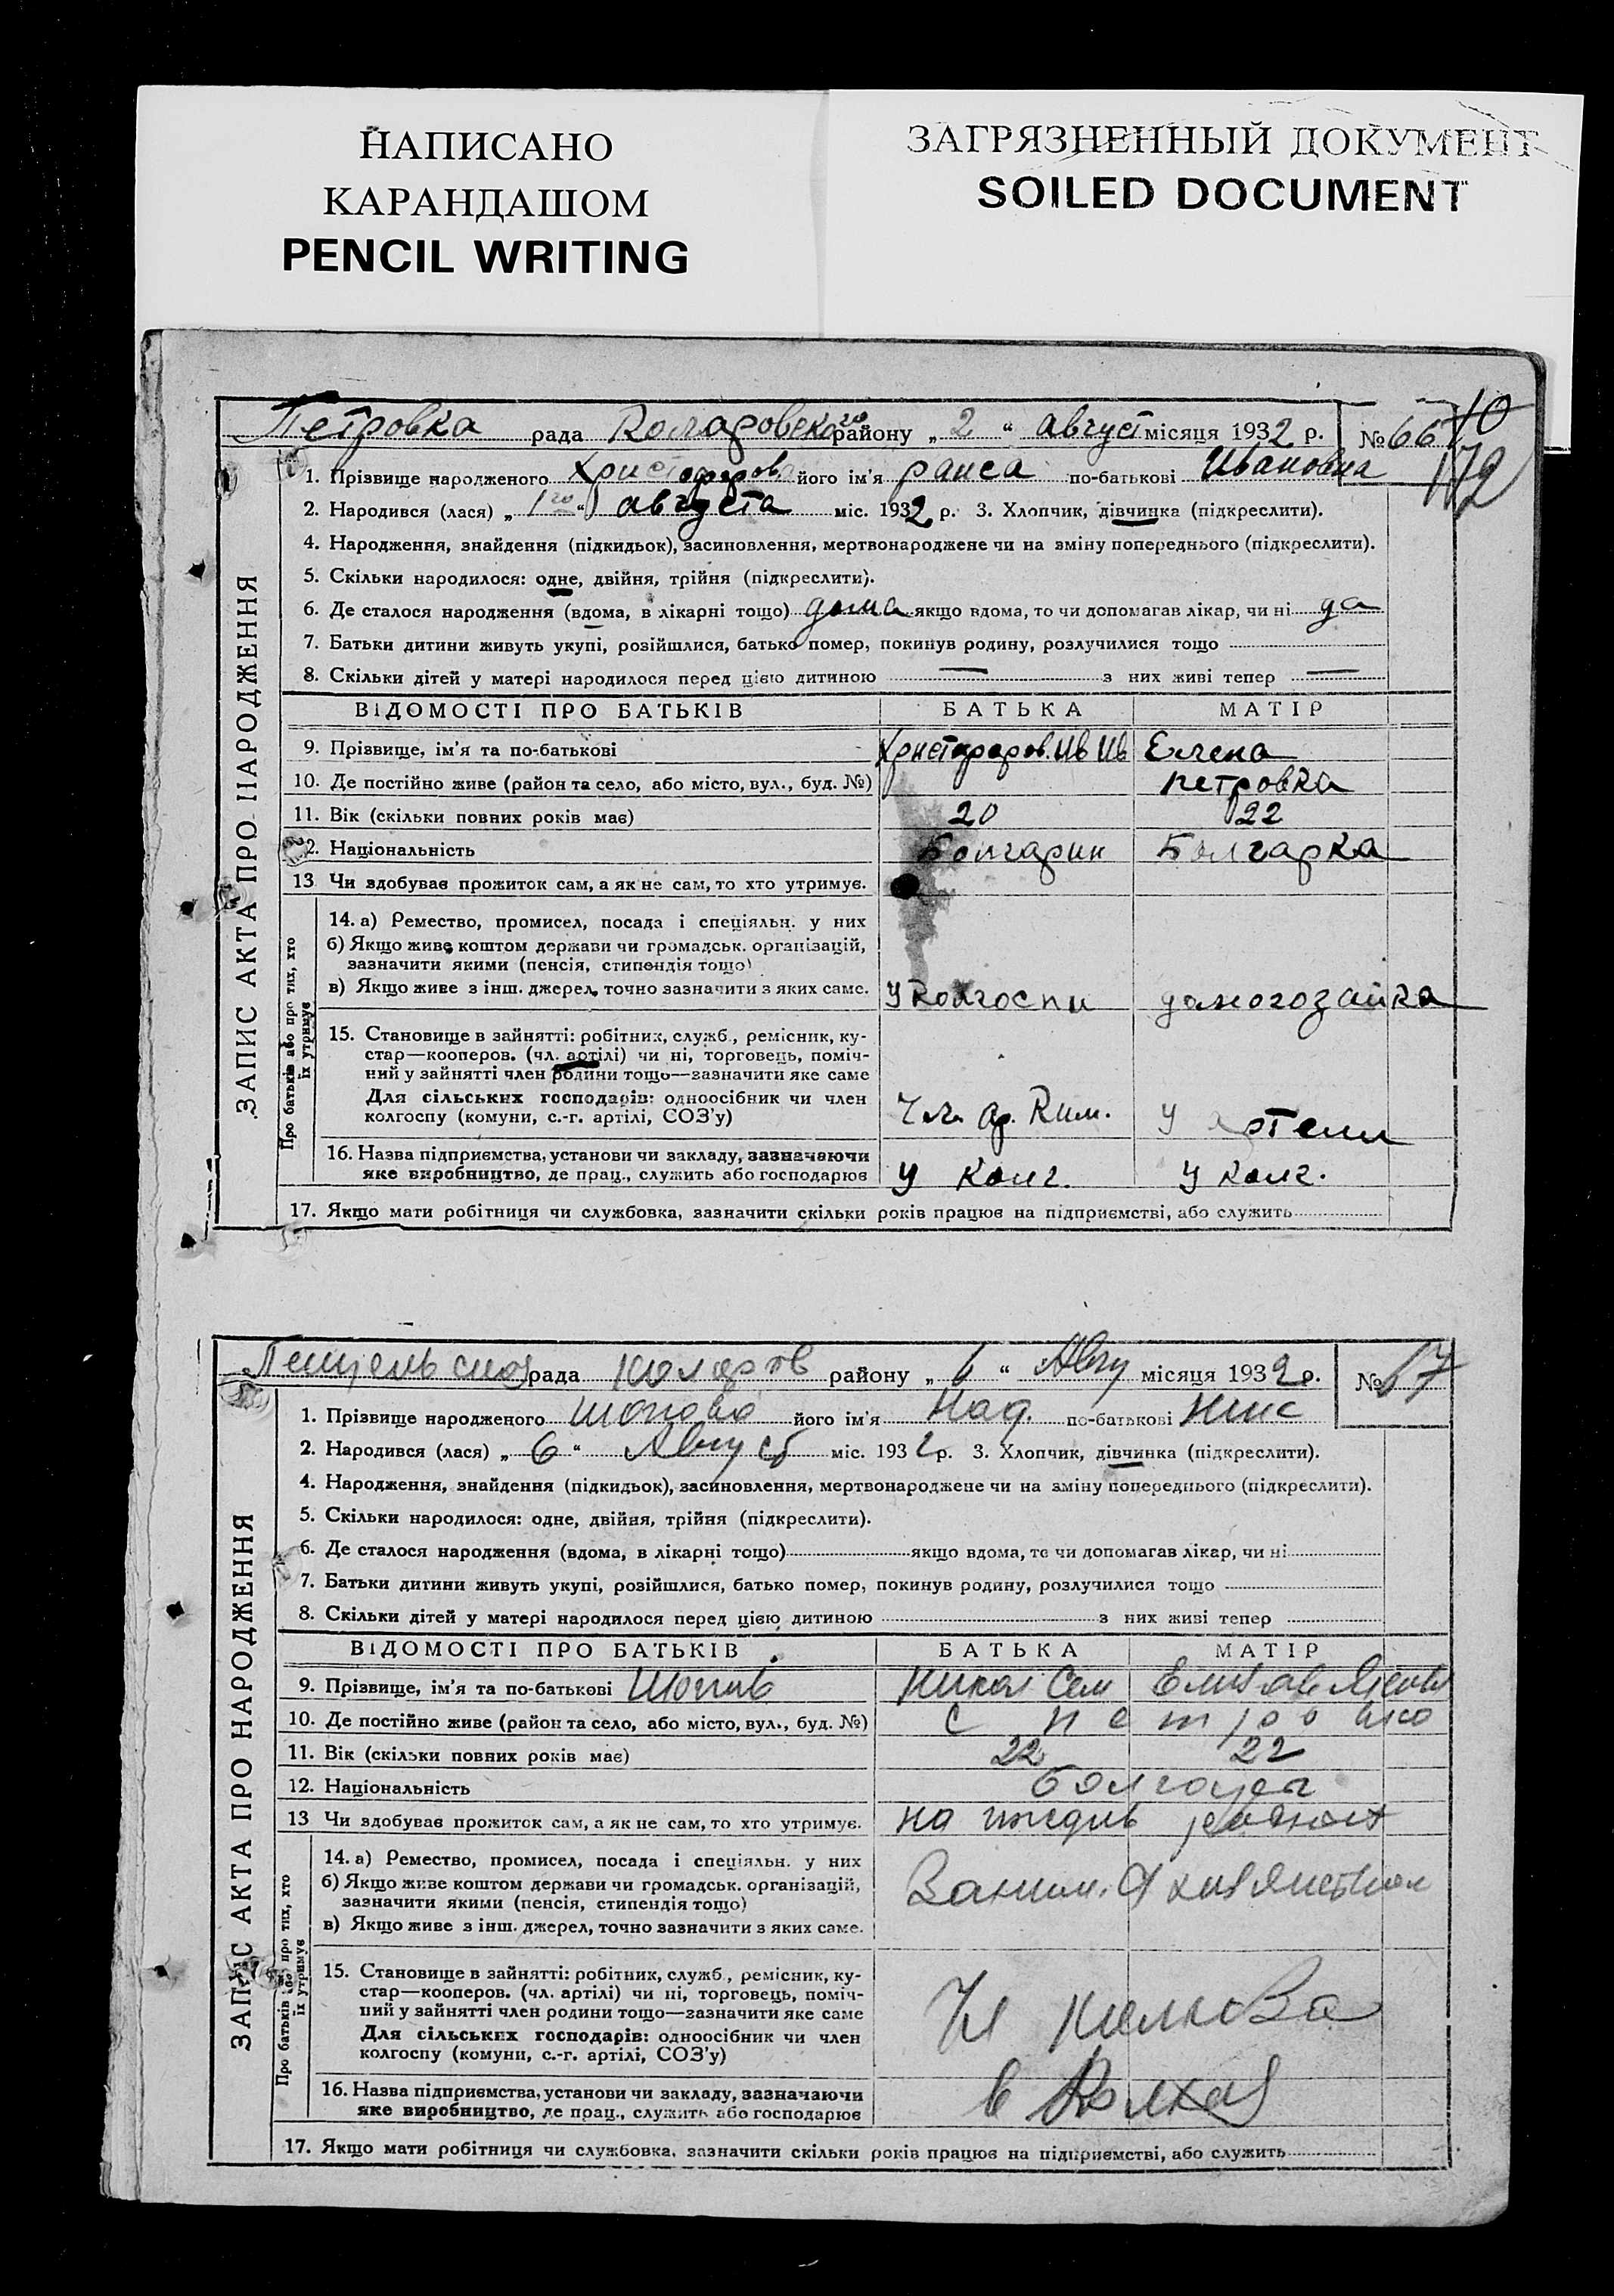 НАПИСАНО
КАРАНДАШОМ
PENCIL WRITING
ЗАГРЯЗНЕННЫЙ ДОКУМЕНТ
SOILED DOCUMENT
Петровка рада Коларовского району „ 2 “ август місяця 1932 р. № 66 70
172
1. Прізвище народженого Христофорова його ім'я раиса по-батькові Ивановна
2. Народився (лася) „ 1го “ августа міс. 1932 р. 3. Хлопчик, дівчинка (підкреслити).
4. Народження, знайдення (підкидьок), засиновлення, мертвонароджене чи на зміну попереднього (підкреслити).
5. Скільки народилося: одне, двійня, трійня (підкреслити).
6. Де сталося народження (вдома, в лікарні тощо) дома якщо вдома, то чи допомагав лікар, чи ні да
7. Батьки дитини живуть укупі, розійшлися, батько помер, покинув родину, розлучилися тощо
8. Скільки дітей у матері народилося перед цією дитиною — з них живі тепер —
ВІДОМОСТІ ПРО БАТЬКІВ БАТЬКА МАТІР
9. Прізвище, ім'я та по-батькові Христофоров Ив Ив Елена
10. Де постійно живе (район та село, або місто, вул., буд. №) петровка
11. Вік (скільки повних років має) 20 22
12. Національність Болгарин Болгарка
13 Чи здобував прожиток сам, а як не сам, то хто утримує.
14. а) Ремество, промисел, посада і спеціяльн. у них
б) Якщо живе коштом держави чи громадськ. організацій,
зазначити якими (пенсія, стипендія тощо)
в) Якщо живе з інш. джерел, точно зазначити з яких саме. У колгоспи домогозайка
15. Становище в зайнятті: робітник, служб., ремісник, ку-
стар—кооперов. (чл. артілі) чи ні, торговець, поміч-
ний у зайнятті член родини тощо—зазначити яке саме
Для сільських господарів: одноосібник чи член
колгоспу (комуни, с.-г. артілі, СОЗ'у) Чл. ар. Ким. У артели
16. Назва підприємства, установи чи закладу, зазначаючи
яке виробництво, де прац., служить або господарює У колг. У колг.
17. Якщо мати робітниця чи службовка, зазначити скільки років працює на підприємстві, або служить
ЗАПИС АКТА ПРО НАРОДЖЕННЯ
Про батьків або про тих, хто
їх утримує
рада Коларов району „ 6 “ Авгу місяця 1932 р. № 67
1. Прізвище народженого Шопова його ім'я Над. по-батькові Ник
2. Народився (лася) „ 6 “ Август міс. 1932 р. 3. Хлопчик, дівчинка (підкреслити).
4. Народження, знайдення (підкидьок), засиновлення, мертвонароджене чи на зміну попереднього (підкреслити).
5. Скільки народилося: одне, двійня, трійня (підкреслити).
6. Де сталося народження (вдома, в лікарні тощо) якщо вдома, то чи допомагав лікар, чи ні
7. Батьки дитини живуть укупі, розійшлися, батько помер, покинув родину, розлучилися тощо
8. Скільки дітей у матері народилося перед цією дитиною з них живі тепер
ВІДОМОСТІ ПРО БАТЬКІВ БАТЬКА МАТІР
9. Прізвище, ім'я та по-батькові Шопов Никол Сем Елизав
10. Де постійно живе (район та село, або місто, вул., буд. №) с петровка
11. Вік (скільки повних років має) 22 22
12. Національність болгары
13 Чи здобував прожиток сам, а як не сам, то хто утримує. на иждив
14. а) Ремество, промисел, посада і спеціяльн. у них
б) Якщо живе коштом держави чи громадськ. організацій,
зазначити якими (пенсія, стипендія тощо)
в) Якщо живе з інш. джерел, точно зазначити з яких саме.
15. Становище в зайнятті: робітник, служб., ремісник, ку-
стар—кооперов. (чл. артілі) чи ні, торговець, поміч-
ний у зайнятті член родини тощо—зазначити яке саме
Для сільських господарів: одноосібник чи член
колгоспу (комуни, с.-г. артілі, СОЗ'у) Чл
16. Назва підприємства, установи чи закладу, зазначаючи
яке виробництво, де прац., служить або господарює в Колхоз
17. Якщо мати робітниця чи службовка, зазначити скільки років працює на підприємстві, або служить
ЗАПИС АКТА ПРО НАРОДЖЕННЯ
Про батьків або про тих, хто
їх утримує